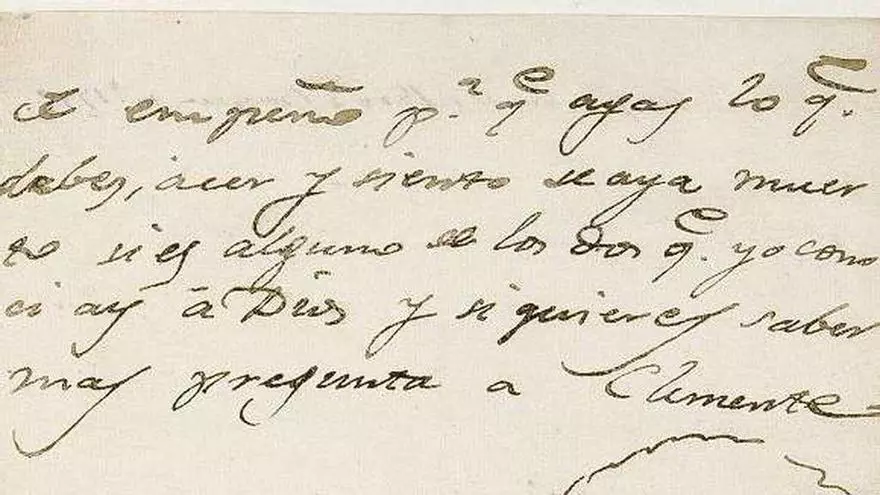 empeño p.ª q.e agas lo q.e
debes, acer y siento se aya muer
to si es alguno de los dos q.e yo cono
ci ay á Dios y si quieres saber
mas pregunta a Clemente